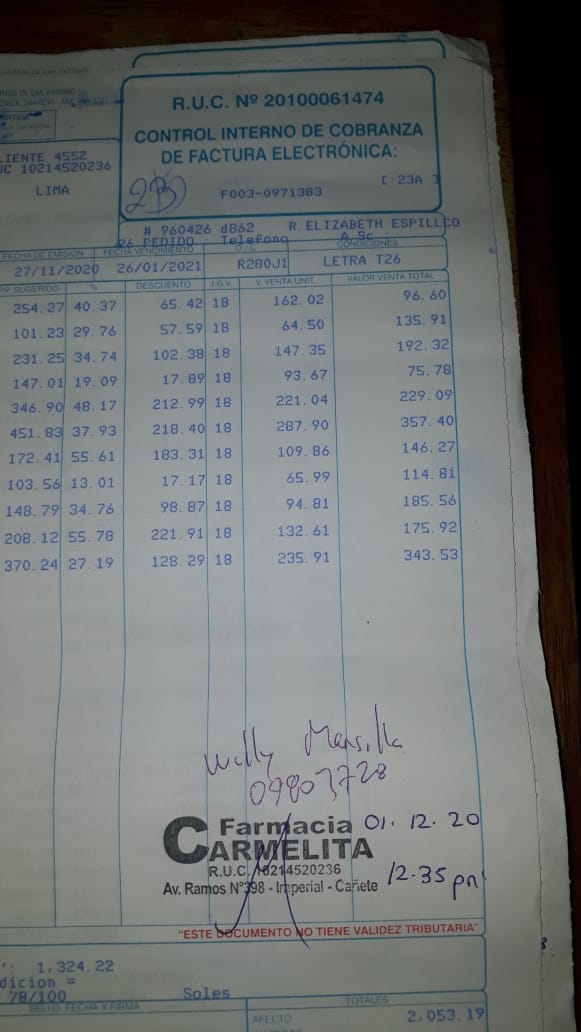 R.U.C. Nº 20100061474
RTOS DE SAN ANTONIO
CONTROL INTERNO DE COBRANZA
DE FACTURA ELECTRÓNICA:
LIENTE 4552
UC 10214520236
LIMA
[ 23A ]
F003-0971383
# 960426 d862 R.ELIZABETH ESPILLCO
26 PEDIDO : Telefono A Sc
FECHA DE EMISIÓN FECHA VENCIMIENTO O / C CONDICIONES
27/11/2020 26/01/2021 R280J1 LETRA T26
PP SUGERIDO % DESCUENTO I.G.V. V. VENTA UNIT. VALOR VENTA TOTAL
254.27 40.37 65.42 18 162.02 96.60
101.23 29.76 57.59 18 64.50 135.91
231.25 34.74 102.38 18 147.35 192.32
147.01 19.09 17.89 18 93.67 75.78
346.90 48.17 212.99 18 221.04 229.09
451.83 37.93 218.40 18 287.90 357.40
172.41 55.61 183.31 18 109.86 146.27
103.56 13.01 17.17 18 65.99 114.81
148.79 34.76 98.87 18 94.81 185.56
208.12 55.78 221.91 18 132.61 175.92
370.24 27.19 128.29 18 235.91 343.53
Willy Mansilla
09803728
Farmacia 01.12.20
CARMELITA
R.U.C. 10214520236
Av. Ramos N°398 - Imperial - Cañete 12.35 pm
"ESTE DOCUMENTO NO TIENE VALIDEZ TRIBUTARIA"
1,324.22
dicion =
78/100 Soles
SELLO, FECHA Y FIRMA TOTALES
AFECTO 2,053.19